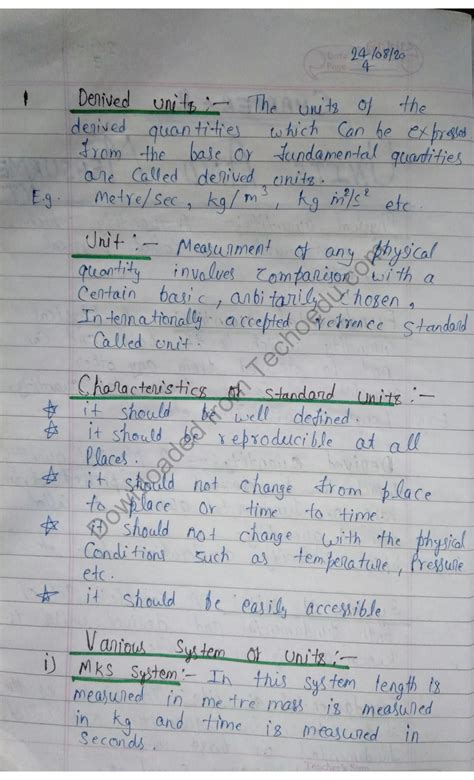 24/08/20
4
1 Derived units :- The units of the
derived quantities which can be expresses
from the base or fundamental quantities
are called derived units.
E.g. Metre/sec, kg/m³, kg m²/s² etc.
Unit :- Measurment of any physical
quantity involves comparison with a
certain basic, arbitarily chosen,
Internationally accepted refrence standard
called unit.
Characteristics of standard units :-
☆ it should be well defined.
☆ it should be reproducible at all
places.
☆ it should not change from place
to place or time to time.
☆ it should not change with the physical
conditions such as temperature, Pressure
etc.
☆ it should be easily accessible
Various system of units :-
i) MKS system :- In this system length is
measured in metre mass is measured
in kg and time is measured in
seconds.
Downloaded from Techoedu.com